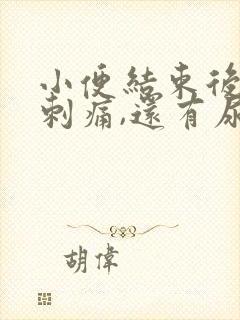 小便結束後
刺痛,還有尿
胡偉